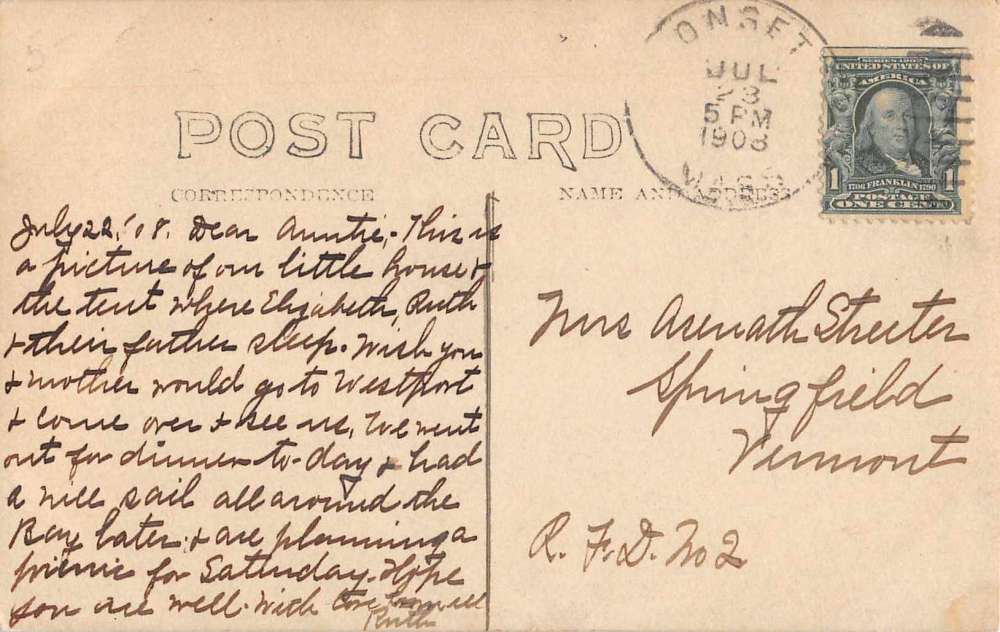 ONSET
JUL
23
5 PM
1908
MASS
SERIES 1902
UNITED STATES OF
AMERICA
1 1
1706 FRANKLIN 1790
POSTAGE
ONE CENT
POST CARD
CORRESPONDENCE
NAME AND ADDRESS
July 22, '08. Dear Auntie,- This is
a picture of our little house &
the tent where Elizabeth, Ruth
& their father sleep. Wish you
& mother would go to Westport
& come over & see us. We went
out for dinner to-day & had
a nice sail all around the
Bay later & are planning a
picnic for Satturday. Hope
you are well. With love from all
Ruth
Mrs Asenath Streeter
Springfield
Vermont
R. F. D. No 2